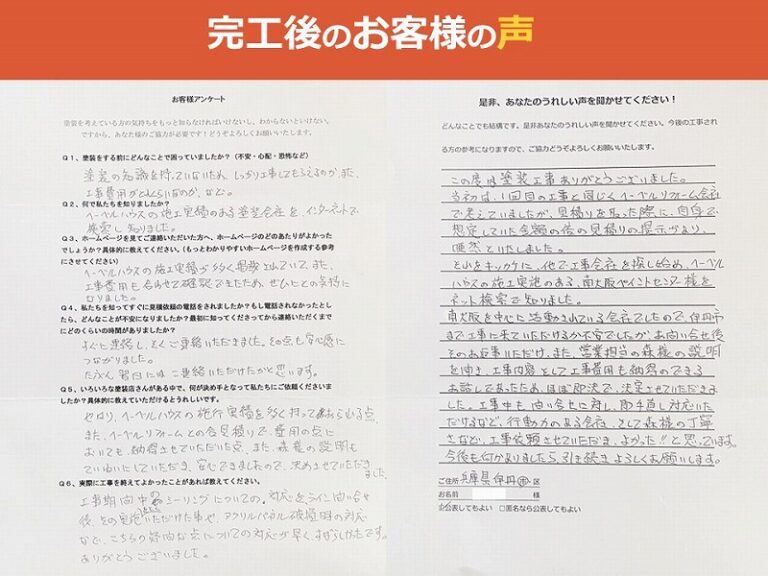 完工後のお客様の声
お客様アンケート
塗装を考えている方の気持ちをもっと知らなければいけないし、わからないといけない。
ですから、あなた様のご協力が必要です！どうぞよろしくお願いいたします。
Q1、塗装をする前にどんなことで困っていましたか？（不安・心配・恐怖など）
塗装の知識を持っていないため、しっかり工事してもらえるのか、また、
工事費用がどれくらいなのか、など。
Q2、何で私たちを知りましたか？
ヘーベルハウスの施工実績のある塗装会社を、インターネットで
検索し知りました。
Q3、ホームページを見てご連絡いただいた方へ、ホームページのどのあたりがよかった
でしょうか？具体的に教えてください。（もっとわかりやすいホームページを作成する参考
にさせてください）
ヘーベルハウスの施工実績が多く掲載されていて、また、
工事費用も合わせて確認できたため、ぜひにとの気持に
なりました。
Q4、私たちを知ってすぐに見積依頼の電話をされましたか？もし電話されなかったとし
たら、どんなことが不安になりましたか？最初に知ってくださってから連絡いただくまで
にどのくらいの時間がありましたか？
すぐに連絡し、とく ご連絡いただきました。その点も安心感に
つながりました。
たぶん 翌日には ご連絡いただけたかと思います。
Q5、いろいろな塗装店さんがある中で、何が決め手となって私たちにご依頼くださいま
したか？具体的に教えていただけるとうれしいです。
やはり、ヘーベルハウスの施行実積を多く持っておられる点、
また、ヘーベルリフォームとの合見積りで、費用の点に
おいても、納得させていただいた点、また、森様の説明も
ていねいにしていただき、安心できましたので、決めさせていただきました。
Q6、実際に工事を終えてよかったことがあれば教えてください。
工事期間中 シーリングについての、対応をライン問い合せ
後、その 実施いただけた事や、アクリルパネル破損時の対応
など、こちらの 点についての対応が早く、すばらしかったです。
ありがとうございました。
是非、あなたのうれしい声を聞かせてください！
どんなことでも結構です。是非あなたのうれしい声を聞かせてください。今後の工事され
る方の参考になりますので、ご協力どうぞよろしくお願いいたします。
この度は塗装工事ありがとうございました。
当初は、1回目の工事と同じくヘーベルリフォーム会社
で考えていましたが、見積りを取った際に、自身で
想定していた金額の倍の見積りの提示があり、
唖然といたしました。
それをキッカケに、他で工事会社を探し始め、ヘーベル
ハウスの施工実施のある、南大阪ペイントセンター様を
ネット検索で知りました。
南大阪を中心に活動されている会社でしたので、伊丹市
まで工事に来ていただけるか不安でしたが、お問い合せ後
そのお返事いただけ、また、営業担当の森様の説明
を聞き、工事内容として工事費用も納得のできる
お話しであったため、ほぼ即決で、決定させていただきま
した。工事中も、問い合せに対し、即手直し対応いた
だけるなど、行動力のある会社、そして森様の丁寧
さなど、工事依頼させていただき、よかった!!と思っています。
今後も何かありましたら、引き続きよろしくお願いします。
ご住所 兵庫県伊丹 市 区
お名前 様
☆公表してもよい □匿名なら公表してもよい